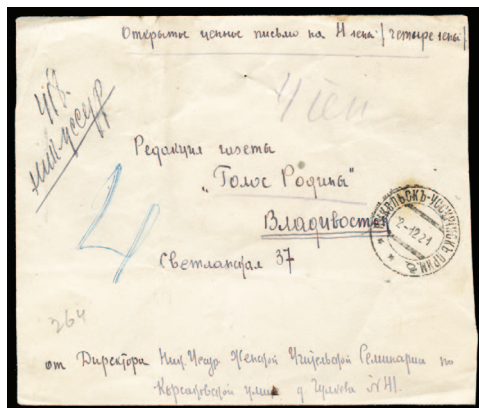 Открытое ценное письмо на 4 иены (четыре иены)
4 иен
Ник Уссур
Редакция газеты
„Голос Родины"
Владивосток
Светланская 37
4
НИКОЛЬСКЪ-УССУРІЙСКЪ ПРИМ.
2-12.21
264
от Директора Ник. Уссур. Женской Учительской Семинарии по
Корсаковской улице д Гуляева N 41.